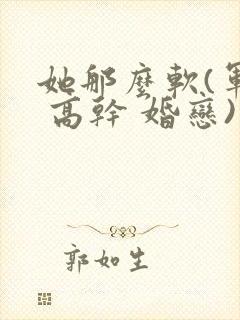 她那麼軟(軍
高幹 婚戀)
郭如生